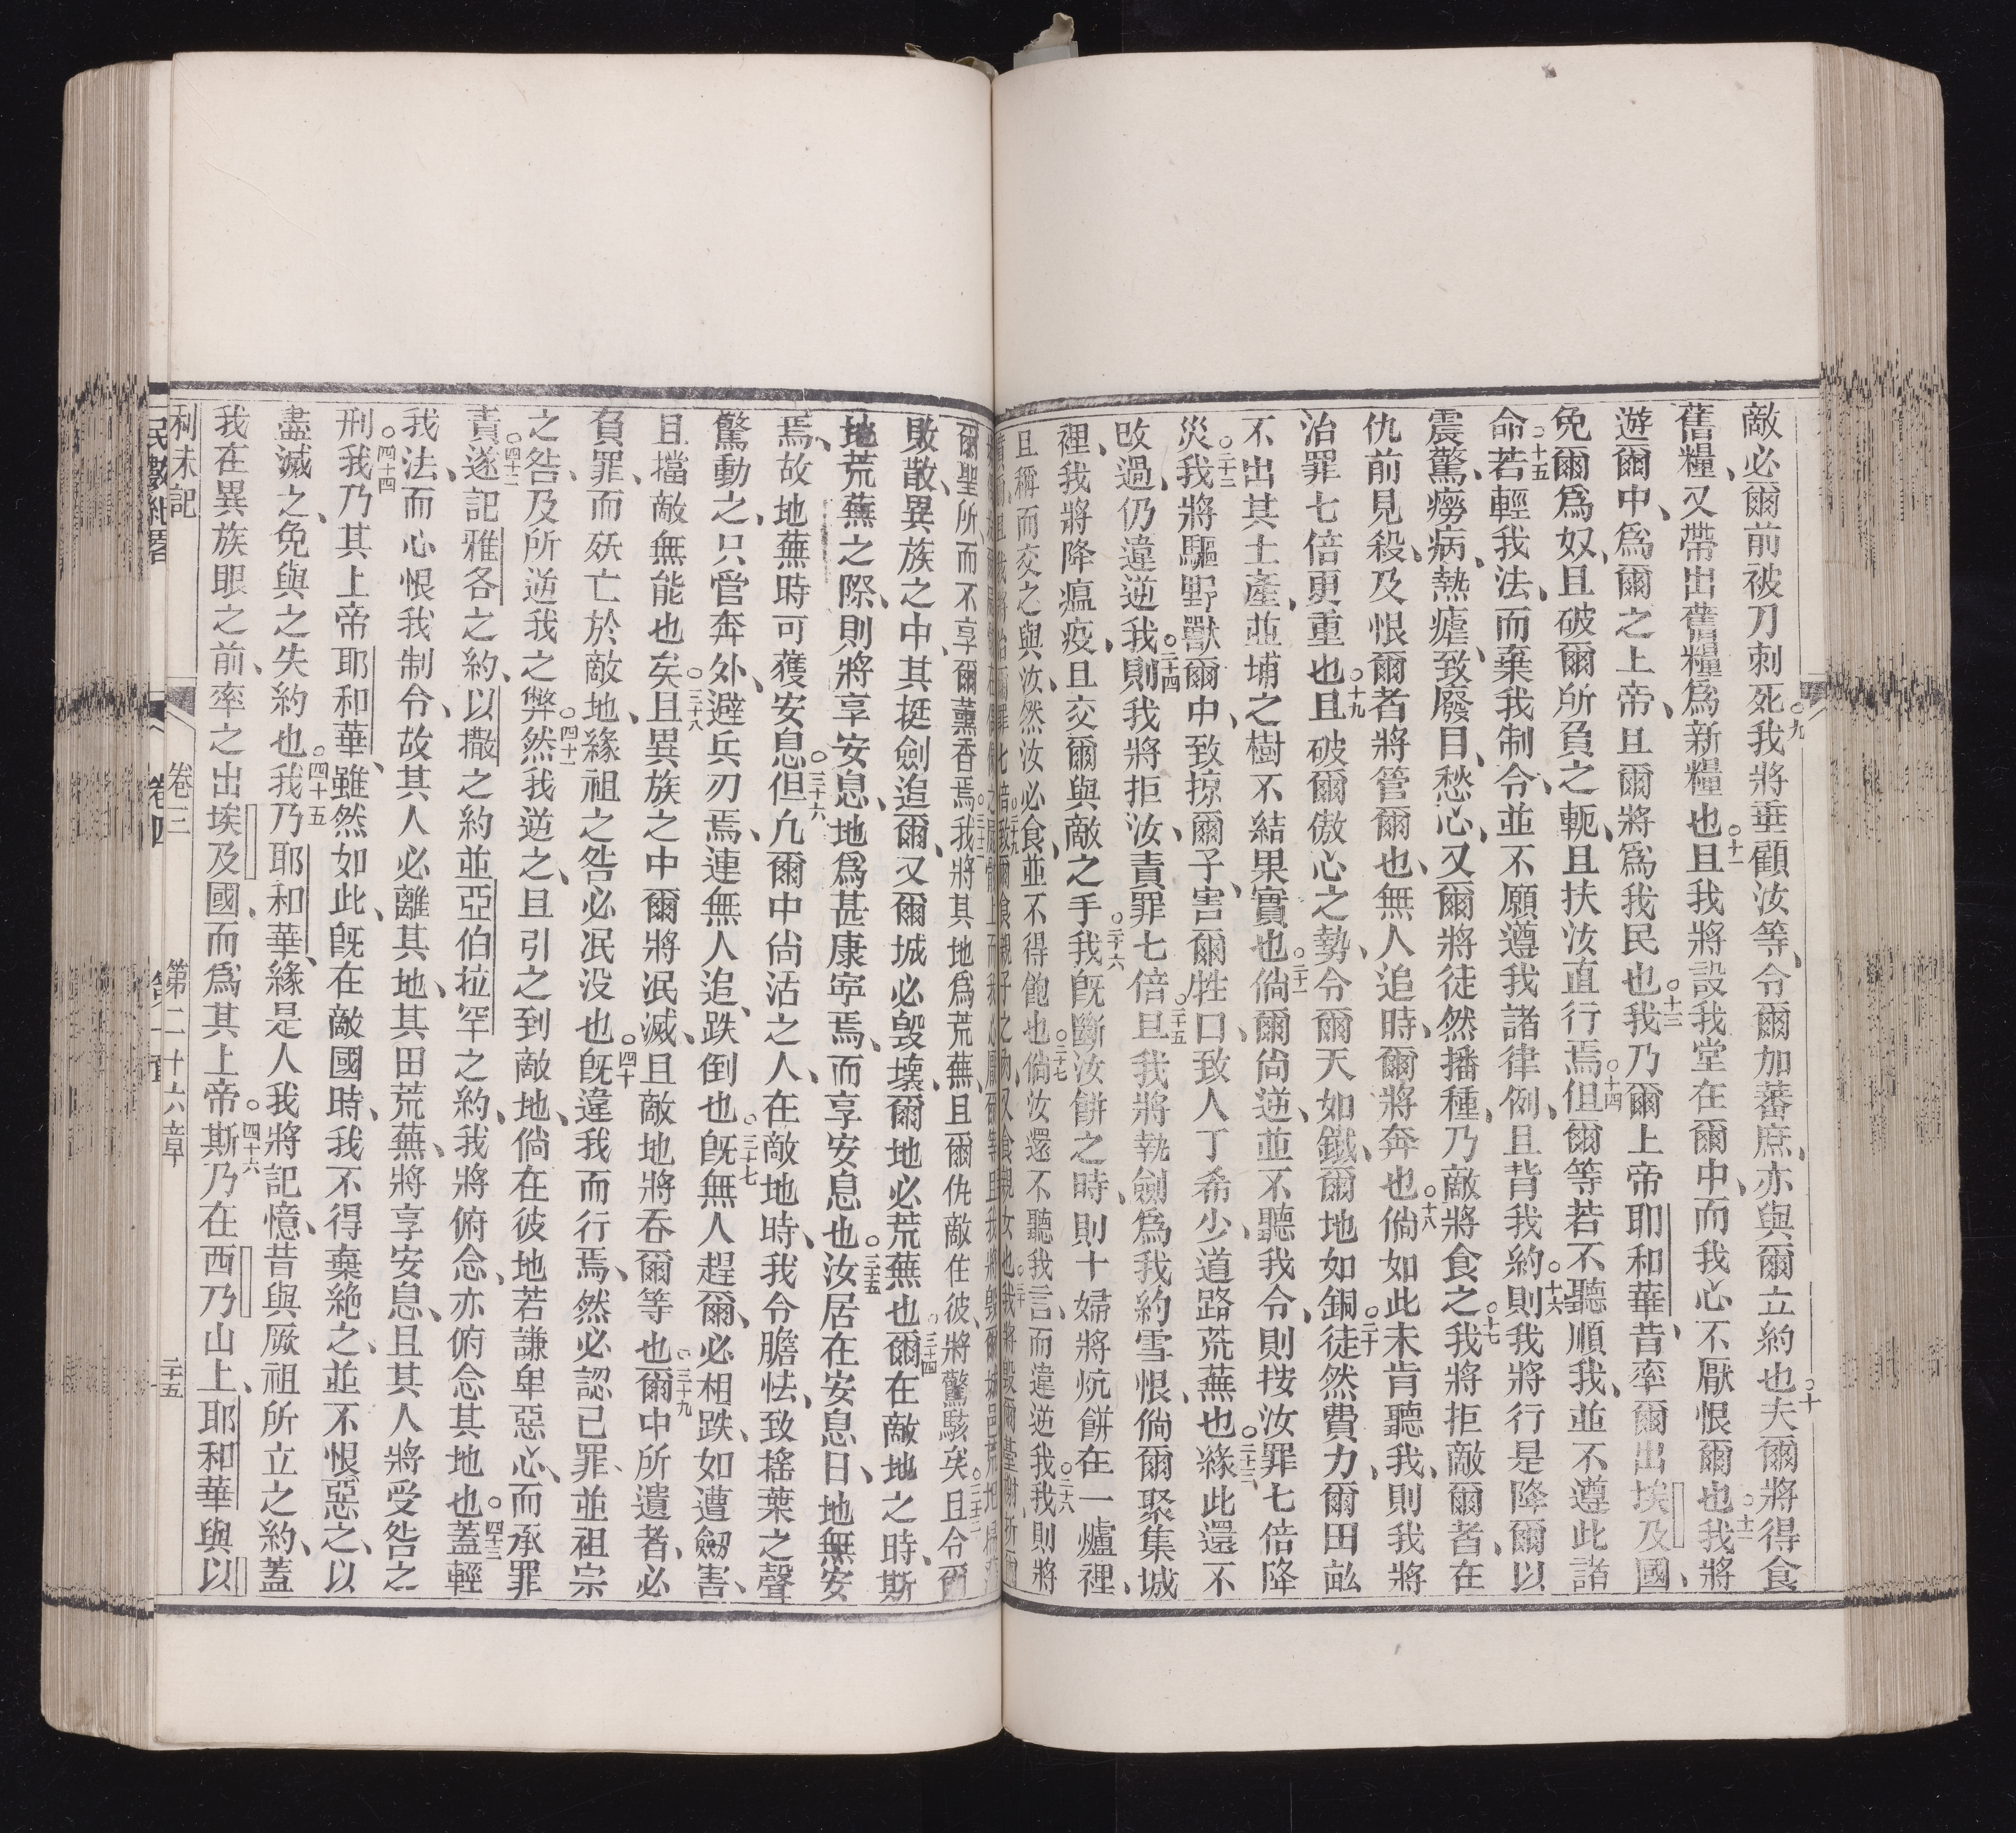 敵必爾前被刀刺死○九我將垂顧汝等、令爾加蕃庶、亦與爾立約也○十夫爾將得食
舊糧、又帶出舊糧爲新糧也○十一且我將設我堂在爾中、而我心不厭恨爾也○十二我將
遊爾中、爲爾之上帝、且爾將爲我民也○十三我乃爾上帝耶和華、昔率爾出埃及國、
免爾爲奴、且破爾所負之軛、且扶汝直行焉○十四但爾等若不聽順我、並不遵此諸
命○十五若輕我法、而棄我制令、並不願遵我諸律例、且背我約○十六則我將行是、降爾以
震驚、癆病、熱瘧、致廢目、愁心、又爾將徒然播種、乃敵將食之○十七我將拒敵爾者、在
仇前見殺、及恨爾者將管爾也、無人追時、爾將奔也○十八倘如此未肯聽我、則我將
治罪七倍更重也○十九且破爾傲心之勢、令爾天如鐵、爾地如銅○二十徒然費力、爾田畝
不出其土產、並埔之樹不結果實也○二十一倘爾尙逆、並不聽我令、則按汝罪七倍降
災○二十二我將驅野獸爾中、致掠爾子、害爾牲口、致人丁希少、道路荒蕪也○二十三緣此還不
改過、仍違逆我○二十四則我將拒汝、責罪七倍○二十五且我將執劍爲我約雪恨、倘爾聚集城
裡、我將降瘟疫、且交爾與敵之手○二十六我旣斷汝餅之時、則十婦將炕餅在一爐裡、
且稱而交之與汝、然汝必食、並不得飽也○二十七倘汝還不聽我言、而違逆我○二十八我則將
爾聖所、而不享爾薰香焉○三十二我將其地爲荒蕪、且爾仇敵住彼、將驚駭矣○三十三且令爾
敗散、異族之中、其挺劍追爾、又爾城必毀壞、爾地必荒蕪也○三十四爾在敵地之時、斯
地荒蕪之際、則將享安息、地爲甚康寧焉、而享安息也○三十五汝居在安息日、地無安
焉、故地蕪時可獲安息○三十六但凢爾中尙活之人、在敵地時、我令膽怯、致搖葉之聲
驚動之、只管奔外、避兵刃焉、連無人追、跌倒也○三十七旣無人趕爾、必相跌、如遭劒害、
且擋敵無能也矣○三十八且異族之中爾將泯滅、且敵地將吞爾等也○三十九爾中所遺者、必
負罪、而殀亡於敵地、緣祖之咎必泯没也○四十旣違我而行焉、然必認己罪、並祖宗
之咎、及所逆我之弊○四十一然我逆之、且引之到敵地、倘在彼地若謙卑惡心、而承罪
責○四十二遂記雅各之約、以撒之約並亞伯拉罕之約、我將俯念、亦俯念其地也○四十三蓋輕
我法、而心恨我制令、故其人必離其地、其田荒蕪、將享安息、且其人將受咎之
刑○四十四我乃其上帝耶和華、雖然如此、旣在敵國時、我不得棄絶之、並不恨惡之、以
盡滅之、免與之失約也○四十五我乃耶和華、緣是人我將記憶、昔與厥祖所立之約、蓋
我在異族眼之前、率之出埃及國、而爲其上帝○四十六斯乃在西乃山上、耶和華與以
利未記 卷三 第二十六章 二十五